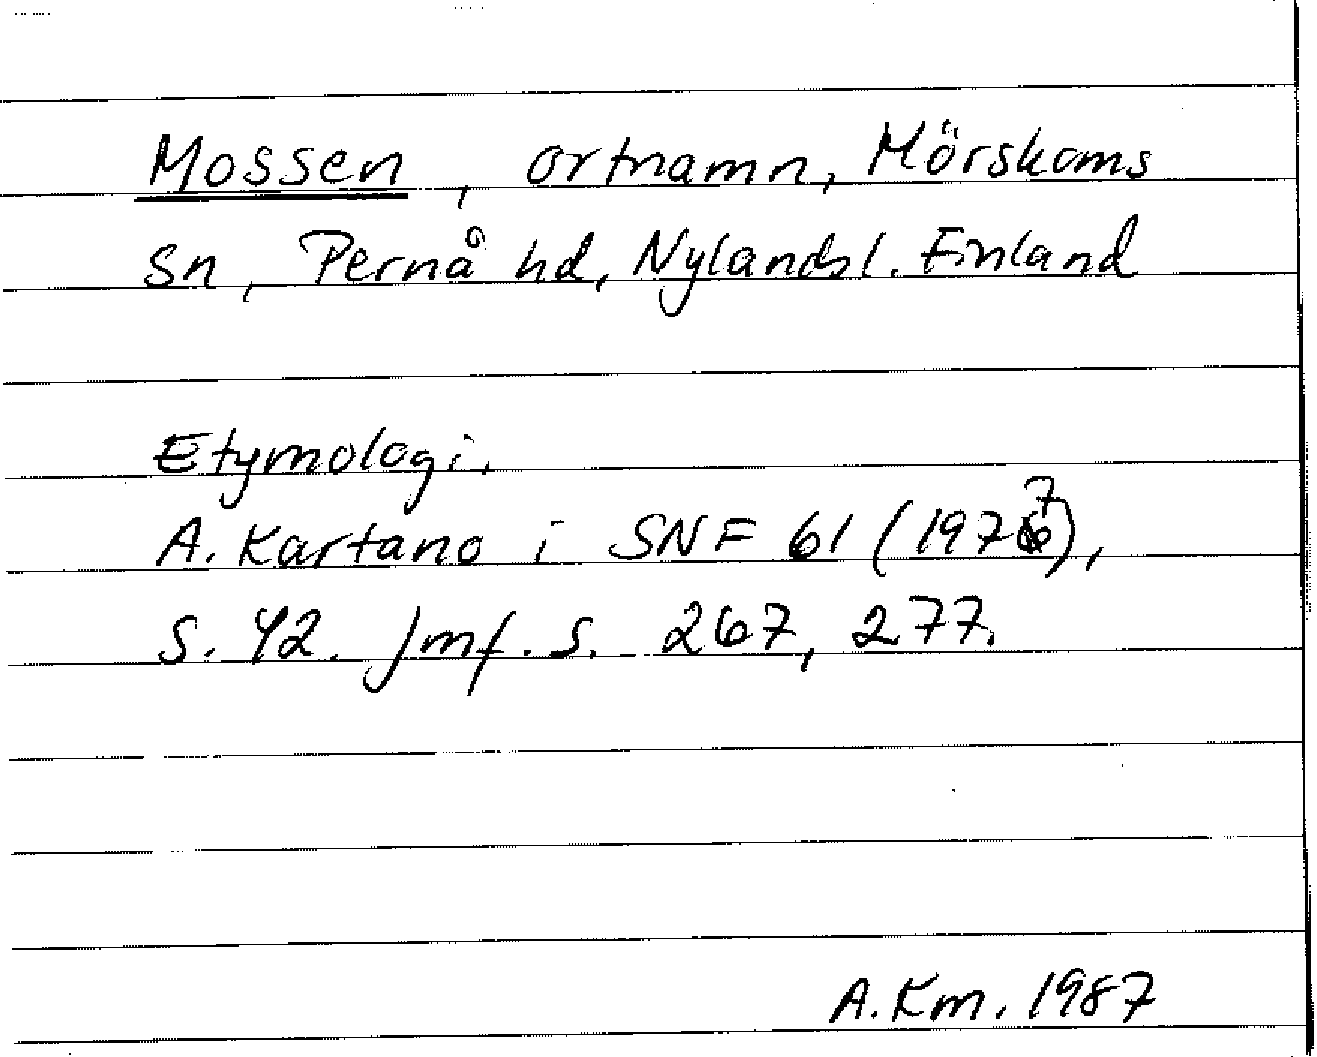 Mossen, ortnamn, Mörskoms
sn, Pernå hd, Nylands l. Finland
Etymologi.
A. Kartano i SNF 61 (1977),
s. 42. Jmf. s. 267, 277.
A. Km. 1987